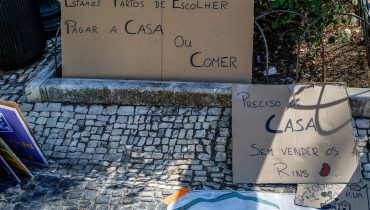 ESTAMOS FARTOS DE ESCOLHER
PAGAR A CASA
OU
COMER
PRECISO DE
CASA
SEM VENDER OS
RINS
RUA